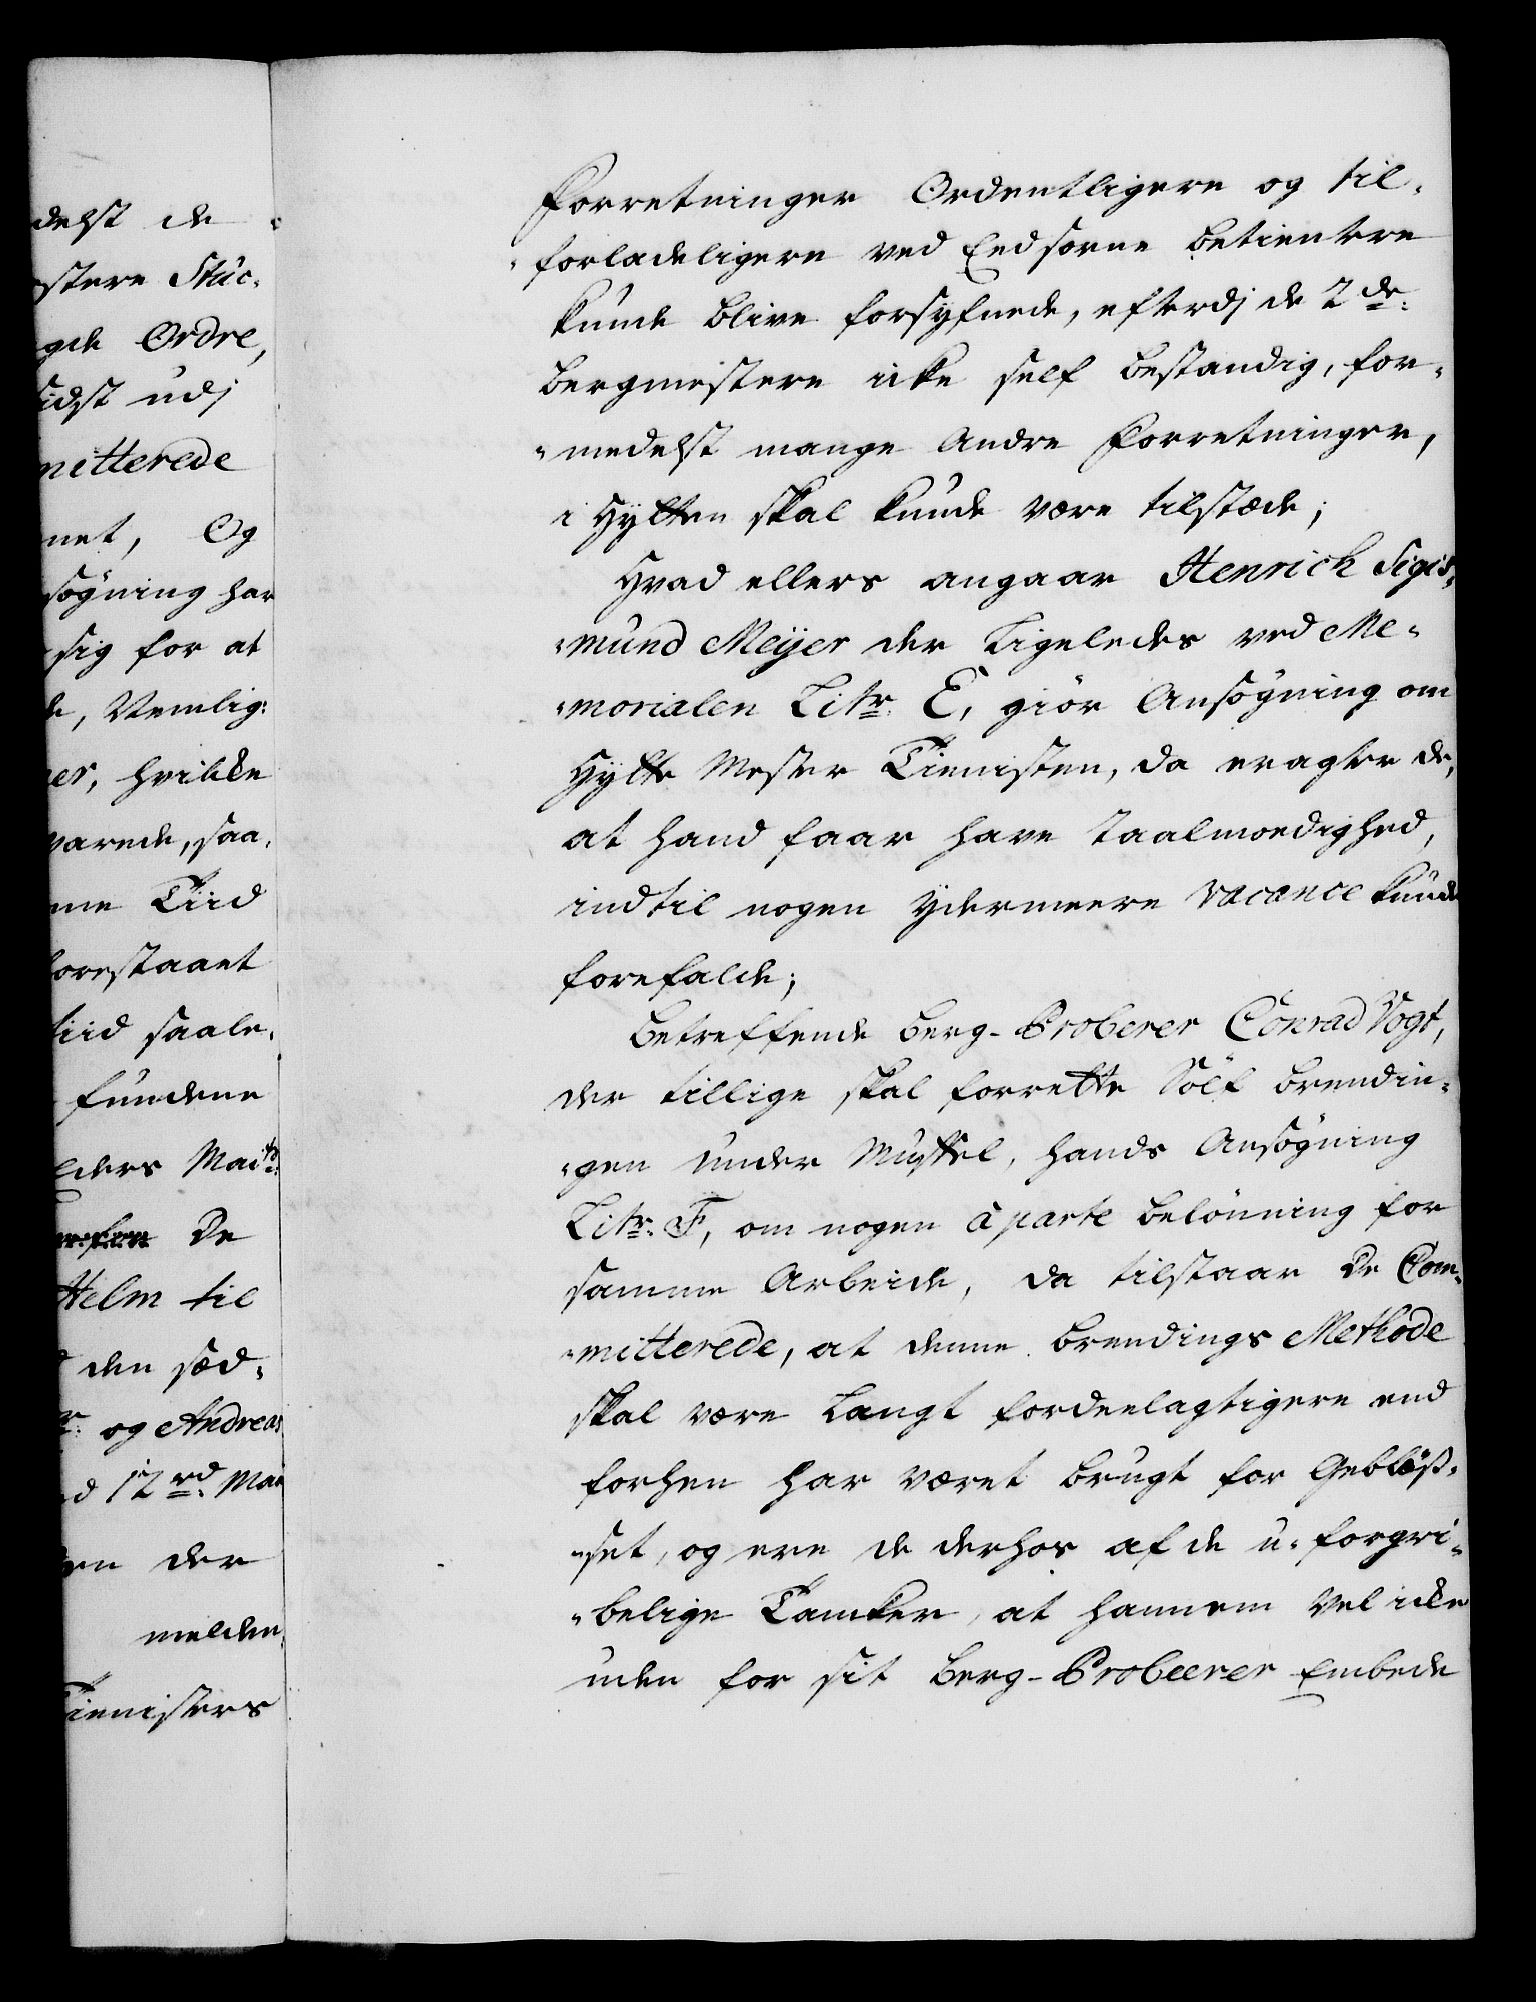 delst de
stere Stüc-
gde Ordre,
sidst udj
mitterede
net, Og
søgning har
sig for at
de, Nemlig:
er, hvilke
varede, saa,
me Tiid
forestaaet
tiid saale,
fundene
lders Maitt:
De
Helm til
den sød,
og Andreas
d 12rd. Mai
gen der
melder,
Tienisters
Forretninger Ordentligere og til-
forladeligere ved Eedsorne betientere
kunde blive forsyfnede, efterdj de 2de:
Bergmestere icke self bestandig, for-
medelst mange Andre Forretninger,
i Hytten skal kunde være tilstæde;
Hvad ellers angaar Henrich Sigis-
mund Meijer der Ligeledes ved Me-
morialen Litr. E, giør Ansøgning om
Hytte Mester Tienisten, da eragter de,
at hand faar have Taalmodighed,
indtil nogen ydermeere vacance kunde
forefalde;
Betreffende Berg-Proberer Conrad Vogt,
der tillige skal forrette Sölf brendin-
gen under Muffel, hands Ansøgning
Litr. F, om nogen à parte belønning for
samme Arbeide, da tilstaar De Com-
mitterede, at denne brendings Methode
skal være Langt fordeelagtigere end
forhen har været brugt for Gebläss-
set, og ere de derhos af de u-forgri-
belige Tancker, at hannem vel icke
uden for sit Berg-Probeerer Embede